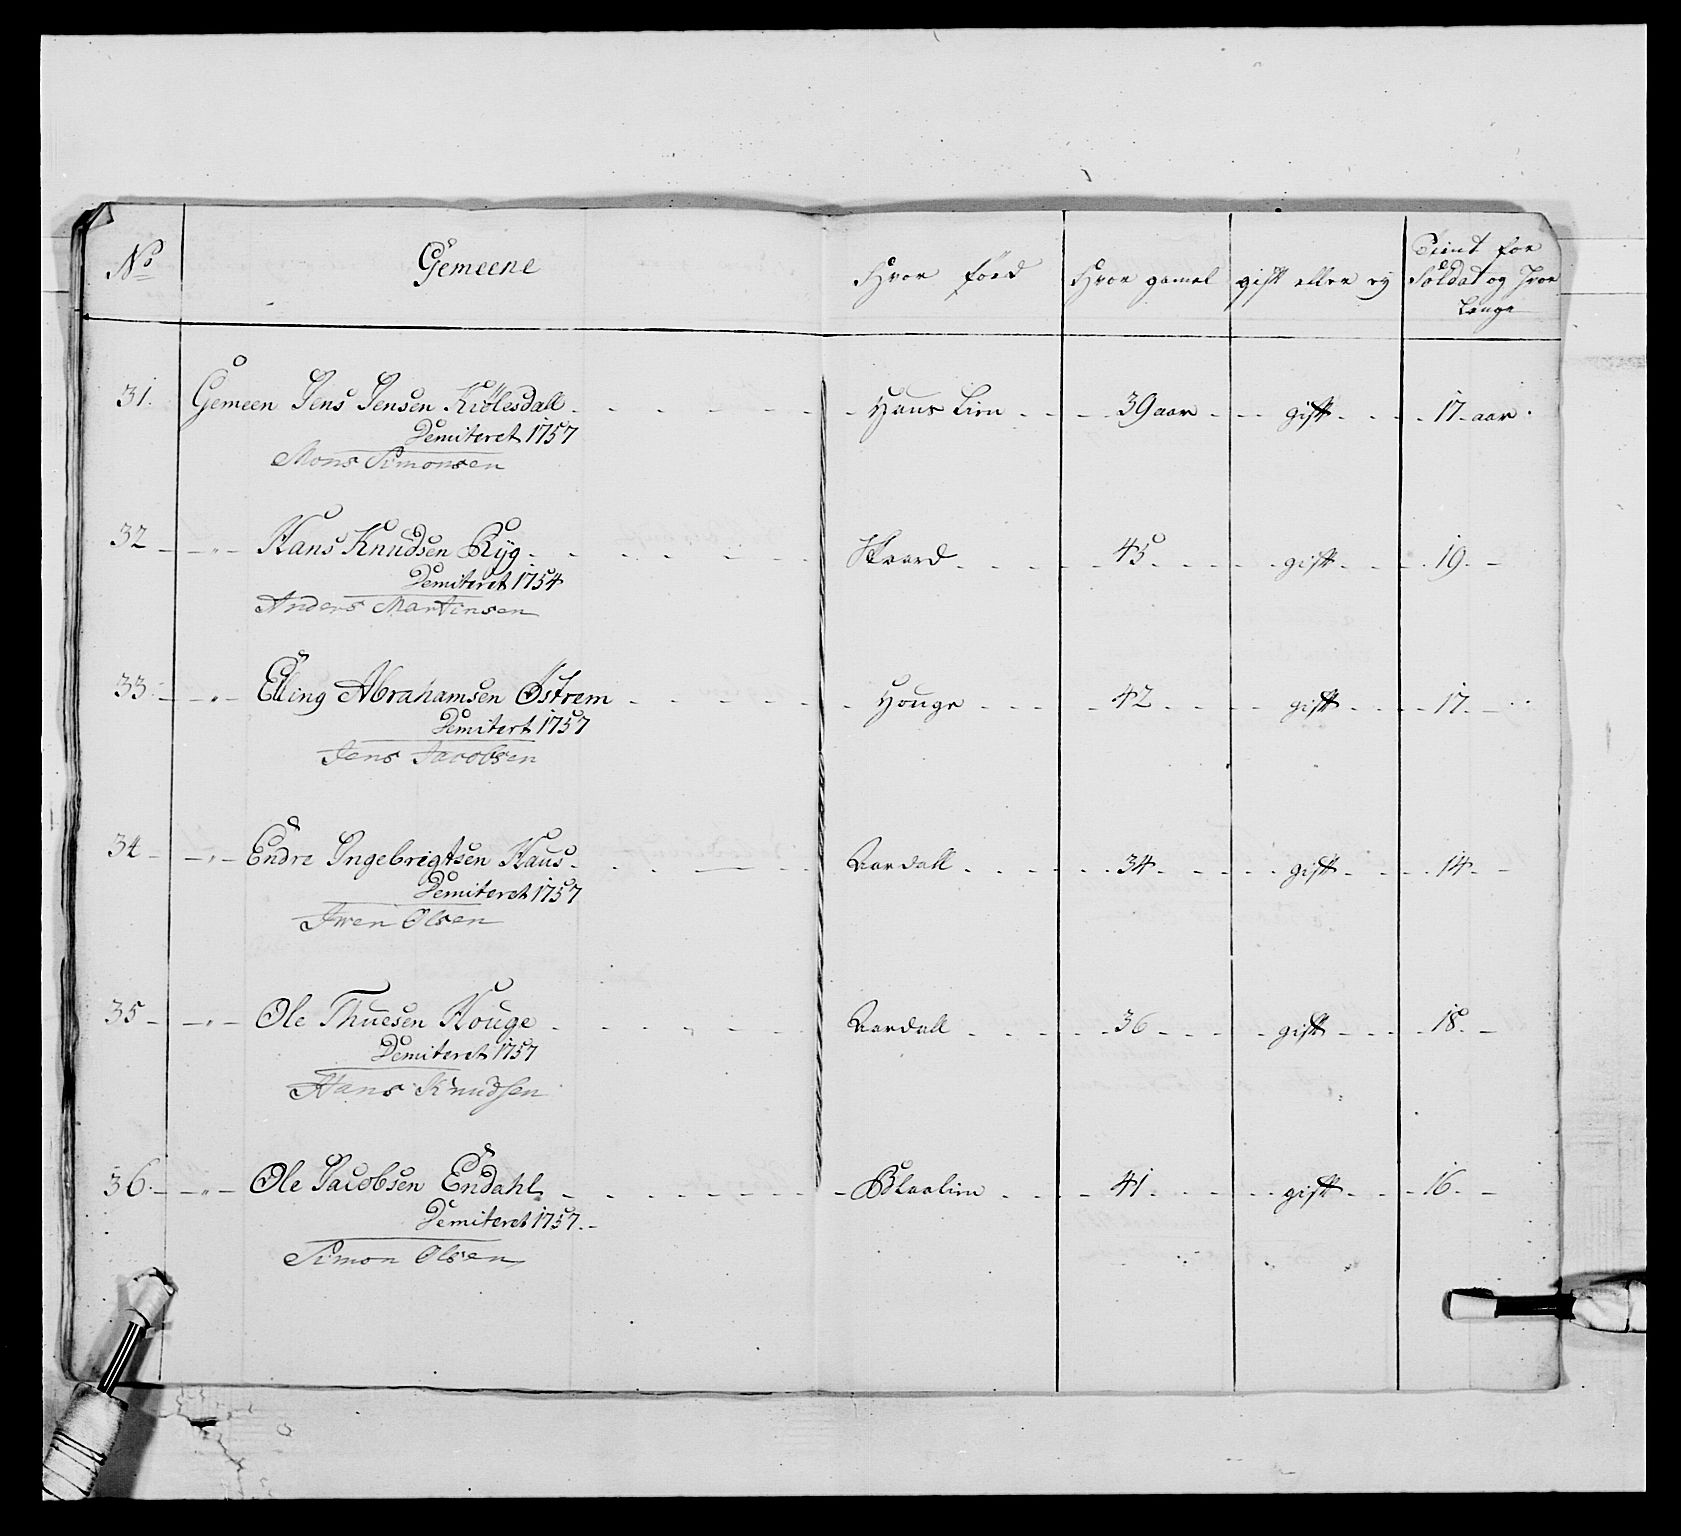 No Gemeene Hvor föed Hvor gamel gift eller ey Tient for
Soldat og Hvor
Længe
31. Gemeen Jens Jensen Kiölesdall Hans Lien 39 aar gift 17 aar
Demiteret 1757
Mons Simonsen
32 Hans Knudsen Ryg 45 gift 19
Demiteret 1754
Anders Martinsen
33 Elling Abrahamsen Østrem Houge 42 gift 17
Demitert 1757
Jens Jacobsen
34 Endre Ingebrigtsen Haus Aardall 34 gift 14
Demiteret 1757
Iwen Olsen
35 Ole Thuesen Houge Aardall 36 gift 18
Demiteret 1757
Hans Knudsen
36 Ole Jacobsen Endahl 41 gift 16
Demiteret 1757
Simon Olsen